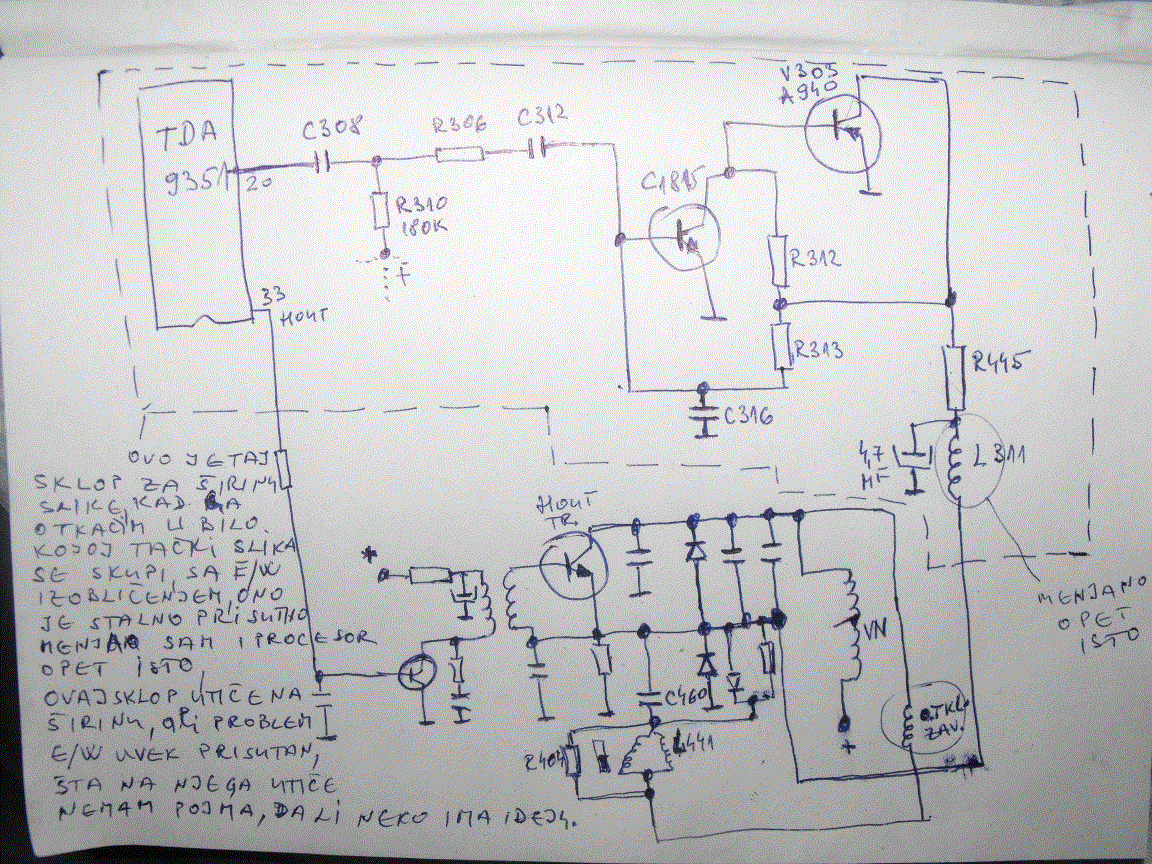 V303
A940
TDA
9351
20
C308
R306
C312
R310
180K
+
C1815
R312
33
HOUT
R313
R445
C316
4,7
MF
L311
OVO JE TAJ
SKLOP ZA ŠIRINU
SLIKE, KAD GA
OTKAČIM U BILO
KOJOJ TAČKI SLIKA
SE SKUPI, SA E/W
IZOBLIČENJEM, ONO
JE STALNO PRISUTNO
MENJAO SAM I PROCESOR
OPET ISTO,
OVAJ SKLOP UTIČE NA
ŠIRINU, ALI PROBLEM
E/W UVEK PRISUTAN,
ŠTA NA NJEGA UTIČE
NEMAM POJMA, DA LI NEKO IMA IDEJU.
HOUT
TR.
*
MENJANO
OPET
ISTO
VN
C460
OTKL.
ZAV.
+
R404
L441